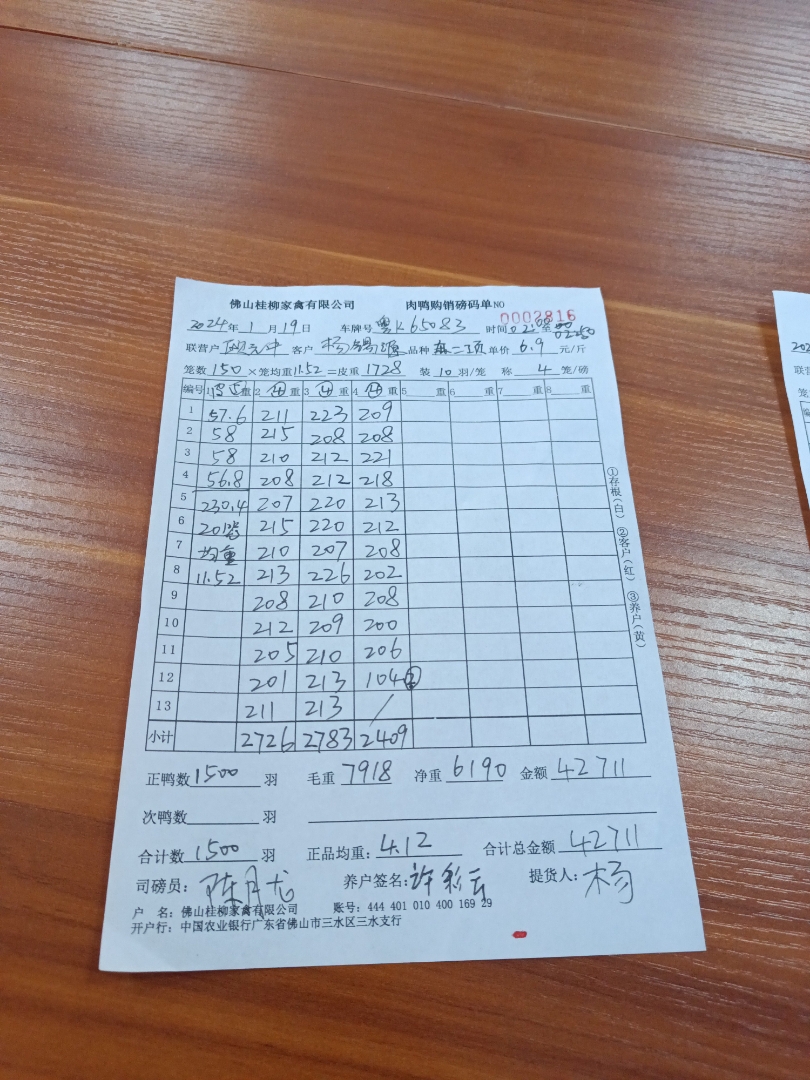 佛山桂柳家禽有限公司 肉鸭购销磅码单NO 0002816
2024年 1月 19日 车牌号 粤K65083 时间
联营户 客户 杨锡 品种 二项 单价 6.9 元/斤
笼数 150 ×笼均重 11.52 =皮重 1728 装 10 羽/笼 称 4 笼/磅
编号 1 ⑤ 重 2 ④ 重 3 ④ 重 4 ④ 重 5 重 6 重 7 重 8 重
1 57.6 211 223 209
2 58 215 208 208
3 58 210 212 221
4 56.8 208 212 218
5 230.4 207 220 213
6 20 215 220 212
7 均重 210 207 208
8 11.52 213 226 202
9 208 210 208
10 212 209 200
11 205 210 206
12 201 213 104②
13 211 213 /
小计 2726 2783 2409
①存根(白) ②客户(红) ③养户(黄)
正鸭数 1500 羽 毛重 7918 净重 6190 金额 42711
次鸭数 羽
合计数 1500 羽 正品均重: 4.12 合计总金额 42711
司磅员: 陈月龙 养户签名: 许彩云 提货人: 杨
户 名: 佛山桂柳家禽有限公司 账号: 444 401 010 400 169 29
开户行: 中国农业银行广东省佛山市三水区三水支行
202
联营
笼